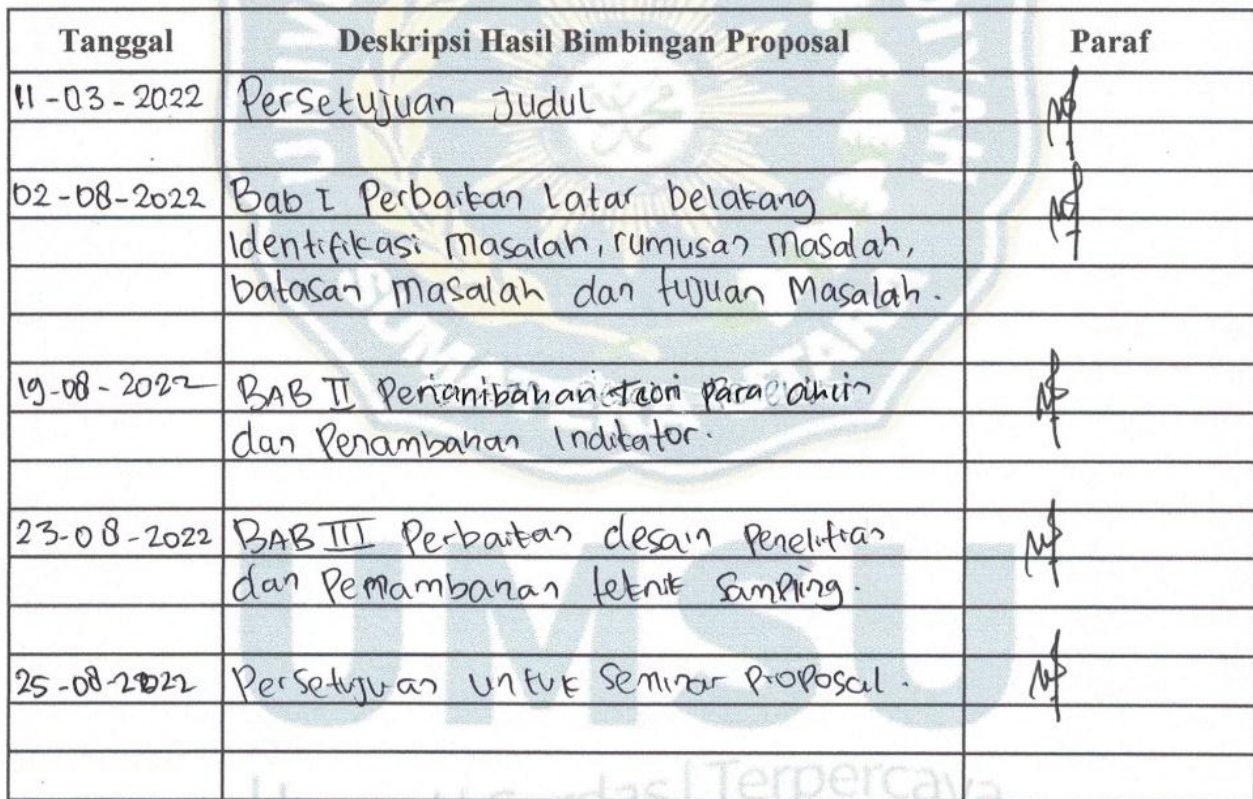 Tanggal Deskripsi Hasil Bimbingan Proposal Paraf
11-03-2022 Persetujuan Judul
02-08-2022 Bab I Perbaikan Latar belakang
Identifikasi Masalah, rumusan Masalah,
batasan Masalah dan tujuan Masalah.
19-08-2022 BAB II Penambahan teori Para
dan Penambahan Indikator.
23-08-2022 BAB III Perbaikan desain Penelitian
dan Penambahan teknik Sampling.
25-08-2022 Persetujuan untuk Seminar Proposal.
UMSU
Terpercaya